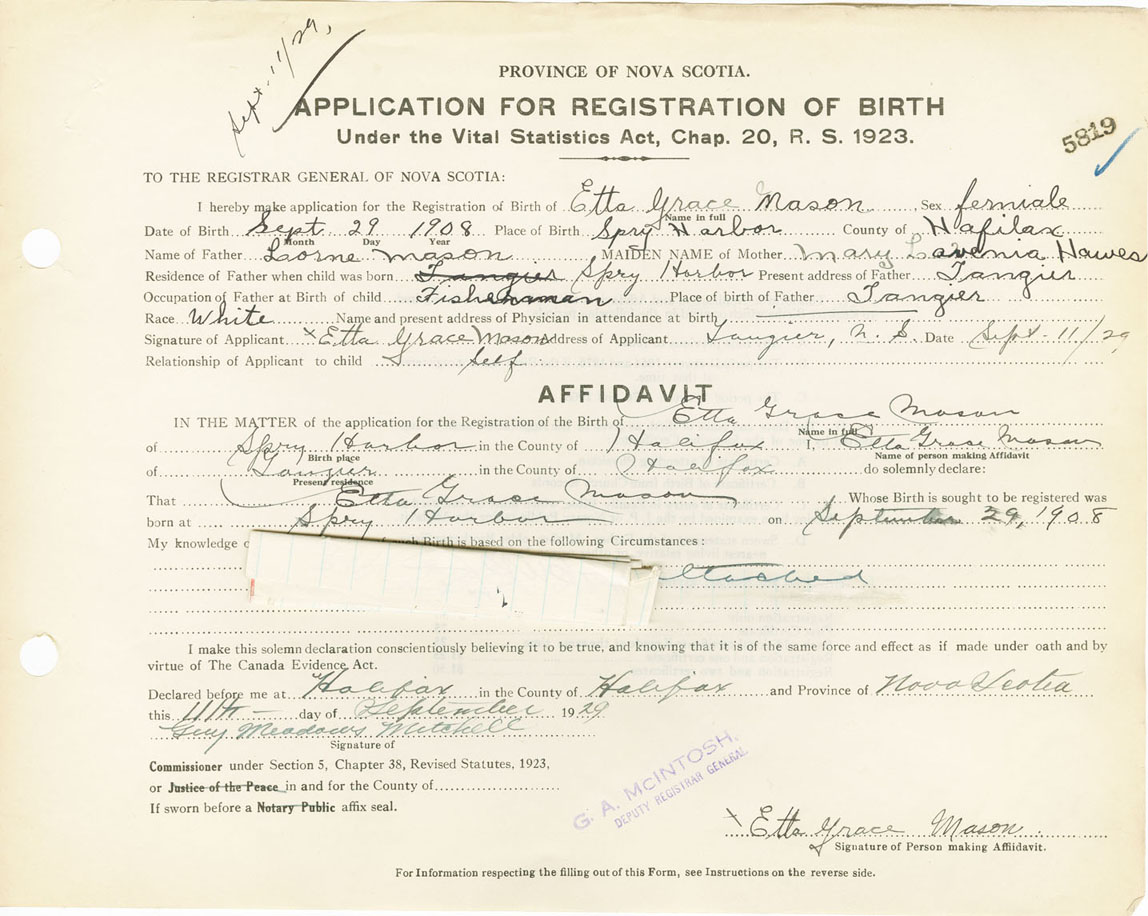 Sept. 11/29,
PROVINCE OF NOVA SCOTIA.
APPLICATION FOR REGISTRATION OF BIRTH
Under the Vital Statistics Act, Chap. 20, R. S. 1923.
5819
TO THE REGISTRAR GENERAL OF NOVA SCOTIA:
I hereby make application for the Registration of Birth of Etta Grace Mason Sex femiale
Name in full
Date of Birth Sept. 29 1908 Place of Birth Spry Harbor County of Hafilax
Month Day Year
Name of Father Lorne Mason MAIDEN NAME of Mother Mary Lavenia Hawes
Residence of Father when child was born Tangier Spry Harbor Present address of Father Tangier
Occupation of Father at Birth of child Fisherman Place of birth of Father Tangier
Race White Name and present address of Physician in attendance at birth
Signature of Applicant x Etta Grace Mason Address of Applicant Tangier, N. S. Date Sept. 11/29
Relationship of Applicant to child Self
AFFIDAVIT
IN THE MATTER of the application for the Registration of the Birth of Etta Grace Mason
Name in full
of Spry Harbor in the County of Halifax I, Etta Grace Mason
Birth place Name of person making Affidavit
of Tangier in the County of Halifax do solemnly declare:
Present residence
That Etta Grace Mason Whose Birth is sought to be registered was
born at Spry Harbor on September 29, 1908
My knowledge Birth is based on the following Circumstances:
attached
I make this solemn declaration conscientiously believing it to be true, and knowing that it is of the same force and effect as if made under oath and by
virtue of The Canada Evidence Act.
Declared before me at Halifax in the County of Halifax and Province of Nova Scotia
this 11th day of September 1929
Guy Meadows Mitchell
Signature of
Commissioner under Section 5, Chapter 38, Revised Statutes, 1923,
or Justice of the Peace in and for the County of
If sworn before a Notary Public affix seal.
G. A. McINTOSH.
DEPUTY REGISTRAR GENERAL
x Etta Grace Mason
Signature of Person making Affidavit.
For Information respecting the filling out of this Form, see Instructions on the reverse side.